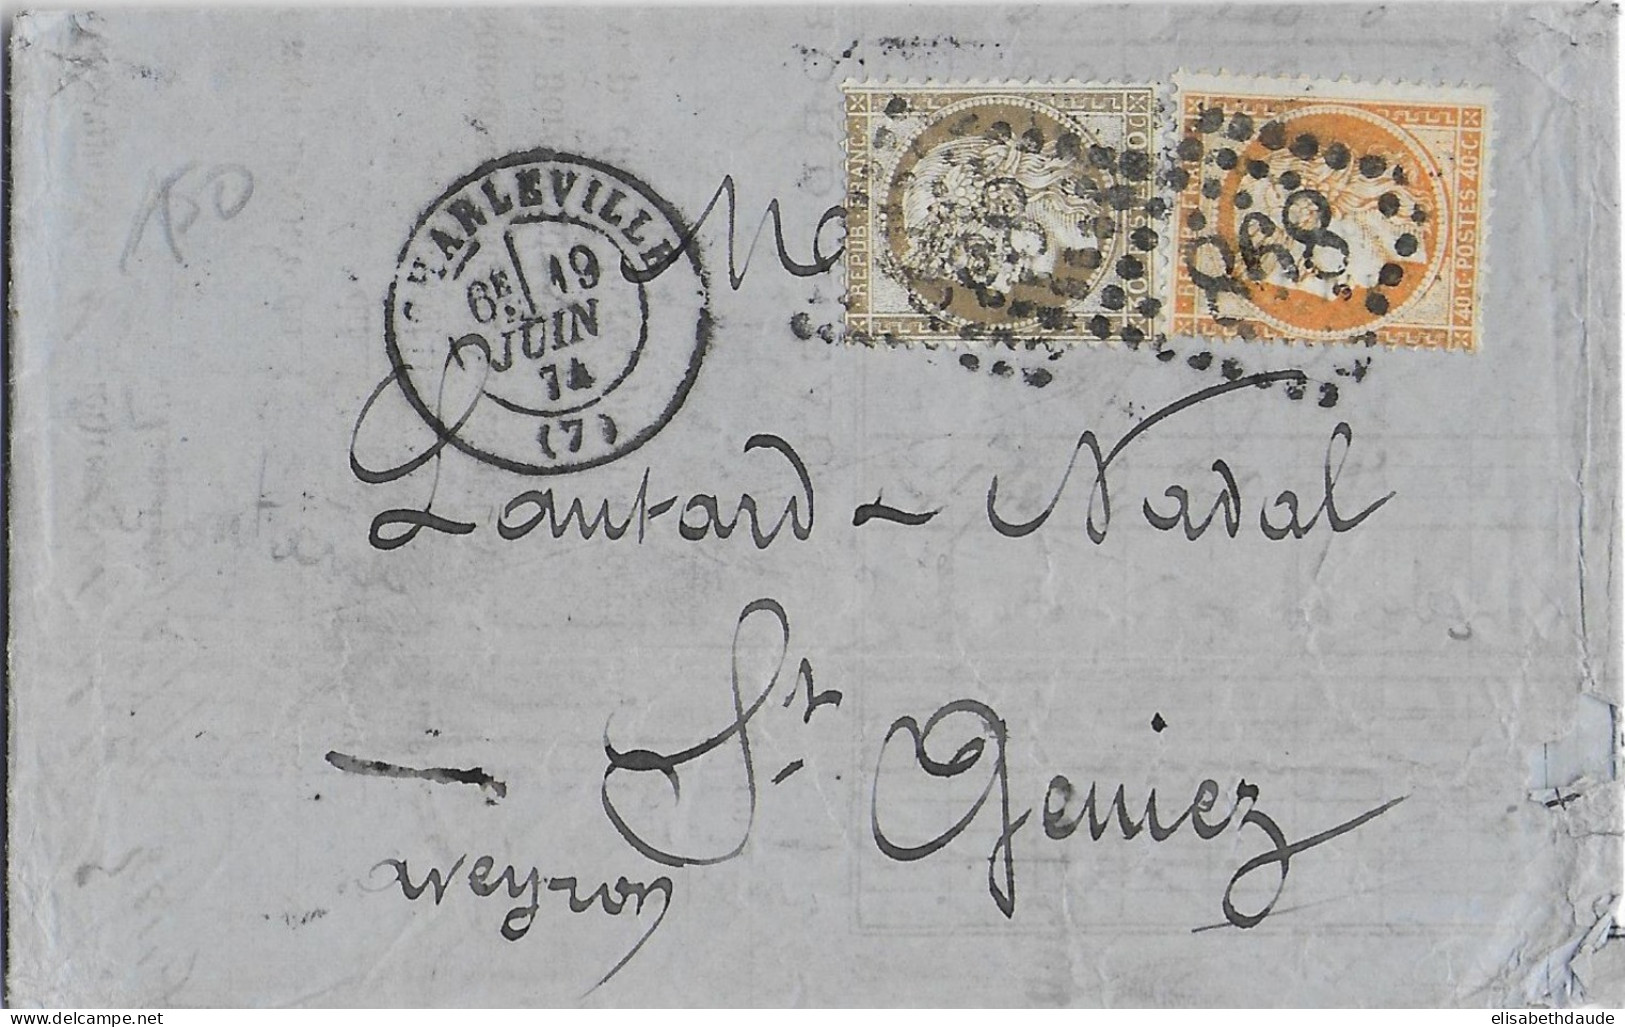 150
CHARLEVILLE
6E 19
JUIN
74
(7)
REPUB·FRANC·
30·C·POSTES·30·C
868
40·C·POSTES·40·C
868
M
Lautard - Nadal
St Geniez
aveyron
delcampe.net
elisabethdaude